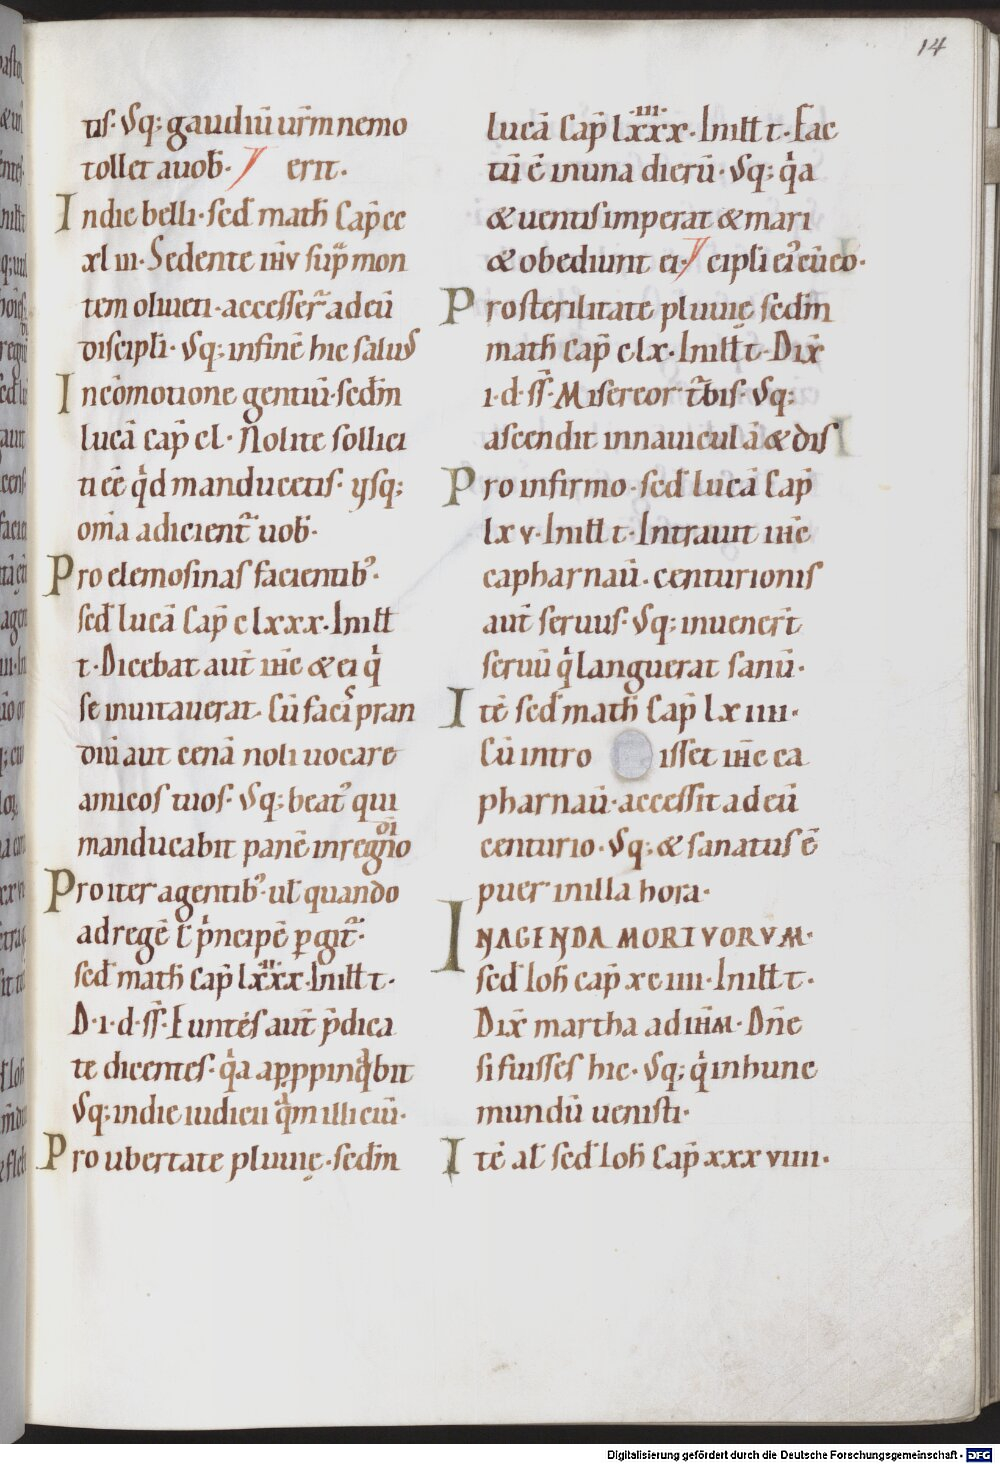 14
tis· Vsq; gaudiū ur̄m nemo
tollet a uob̄· erit·
In die belli· sed̄ math̄ Cap̄ cc
xl iii· Sedente ih̄u sup̄ mon
tem oliueti· accesser̄ ad eū
discipl̄i· Vsq; in finē hic saluꝰ
In cōmotione gentiū· sed̄m
lucā cap̄ cl· Nolite sollici
ti eē qͥd manducetis· ysq;
om̄a adicient̄ uob̄·
Pro elemosinas facientibꝰ·
sed̄ lucā Cap̄ c lxxx· In ill̄
t· Dicebat aut̄ ih̄c & ei qͥ
se inuitauerat· Cū facis pran
diū aut cenā noli uocare
amicos tuos· Vsq; beatꝰ qui
manducabit panē in regno di
Pro iter agentibꝰ· ul̄ quando
ad regē l̄ pͥncipē ꝑgit̄·
sed̄ math̄ cap̄ lxxx·ii· In ill̄ t·
D·i·d·sͬ· Euntes aut̄ p̄dica
te dicentes· qͥa appropinqͣbit
Vsq; in die iudicii qͣm illi ciū·
Pro ubertate pluuię· sed̄m
lucā Cap̄ lxxx·iii· In ill̄ t· Fac
tū ē in una dierū· Vsq; qͥa
& uentis imperat & mari
& obediunt ei· cipl̄i eiꝰ cū eo·
Pro sterilitate pluuię sed̄m
math̄ Cap̄ c lx· In ill̄ t· Dix̄
i·d·sͬ· Misereor t̄bis· Vsq;
ascendit in nauiculā & dis
Pro infirmo· sed̄ lucā Cap̄
lx v· In ill̄ t· Intrauit ih̄c
capharnaū· centurionis
aut̄ seruus· Vsq; inuener̄t
seruū qͥ languerat sanū·
Itē sed̄ math̄ Cap̄ lx iiii·
Cū intro isset ih̄c ca
pharnaū· accessit ad eū
centurio· Vsq; & sanatus ē
puer in illa hora·
IN AGENDA MORTVORVM·
sed̄ Ioh̄ cap̄ xc iiii· In ill̄ t·
Dix̄ martha ad ih̄m· Dn̄e
si fuisses hic· Vsq; qͥ in hunc
mundū uenisti·
Itē al̄ sed̄ Ioh̄ Cap̄ xxx viiii·
Digitalisierung gefördert durch die Deutsche Forschungsgemeinschaft - DFG